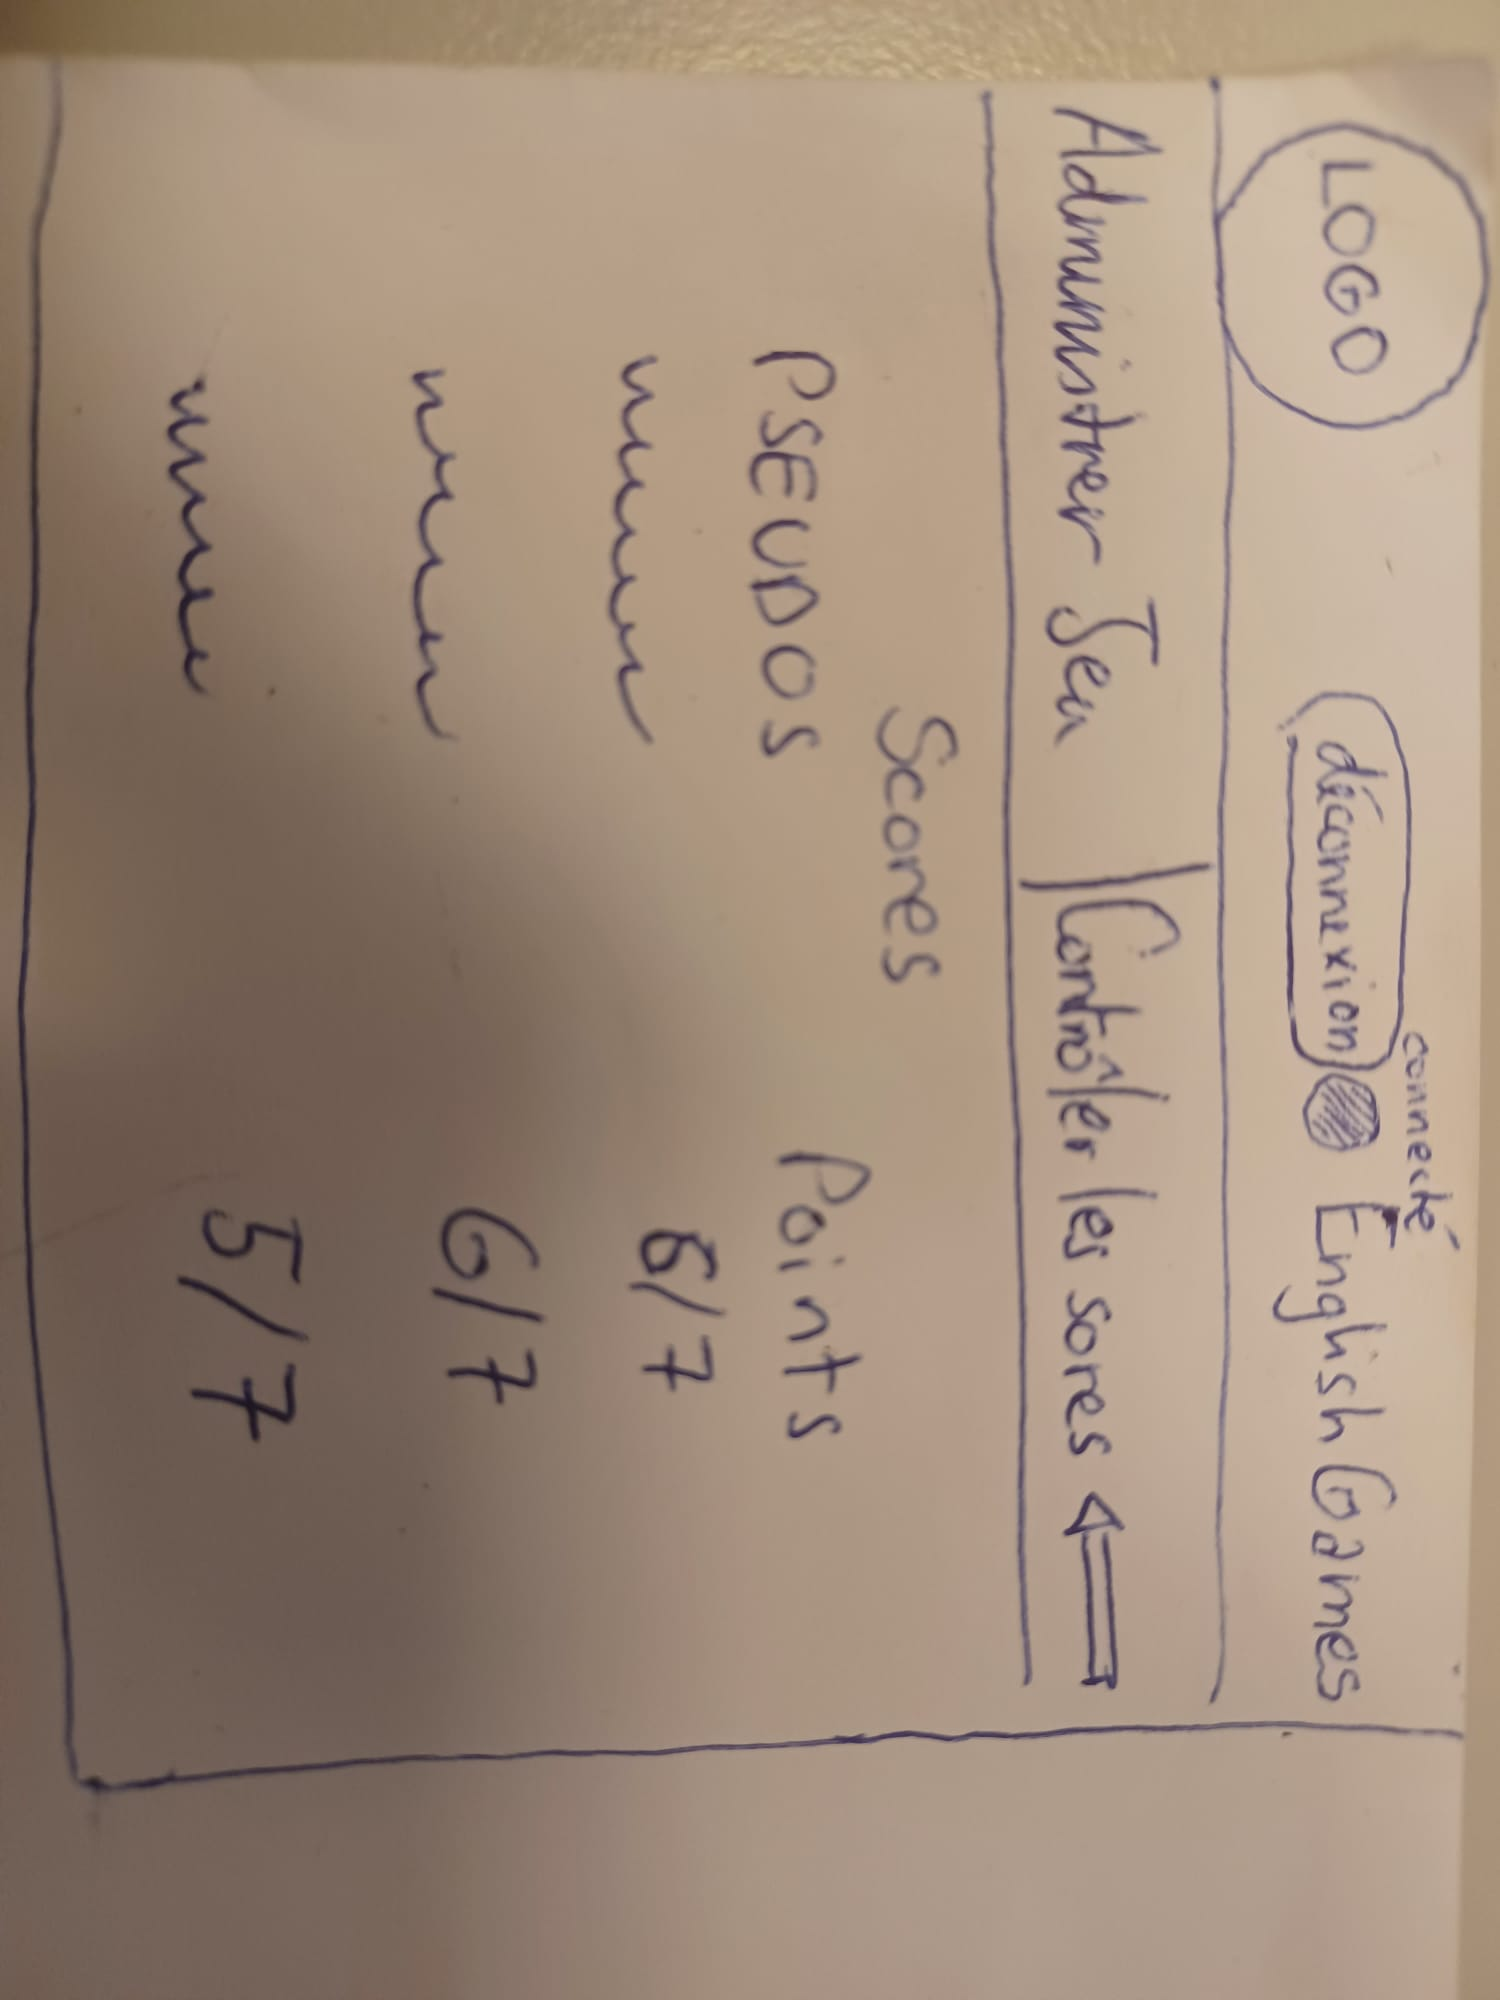 connecté
LOGO déconnexion English Games
Administrer Jeu | Contrôler les sores
Scores
PSEUDOS Points
6/7
6/7
5/7